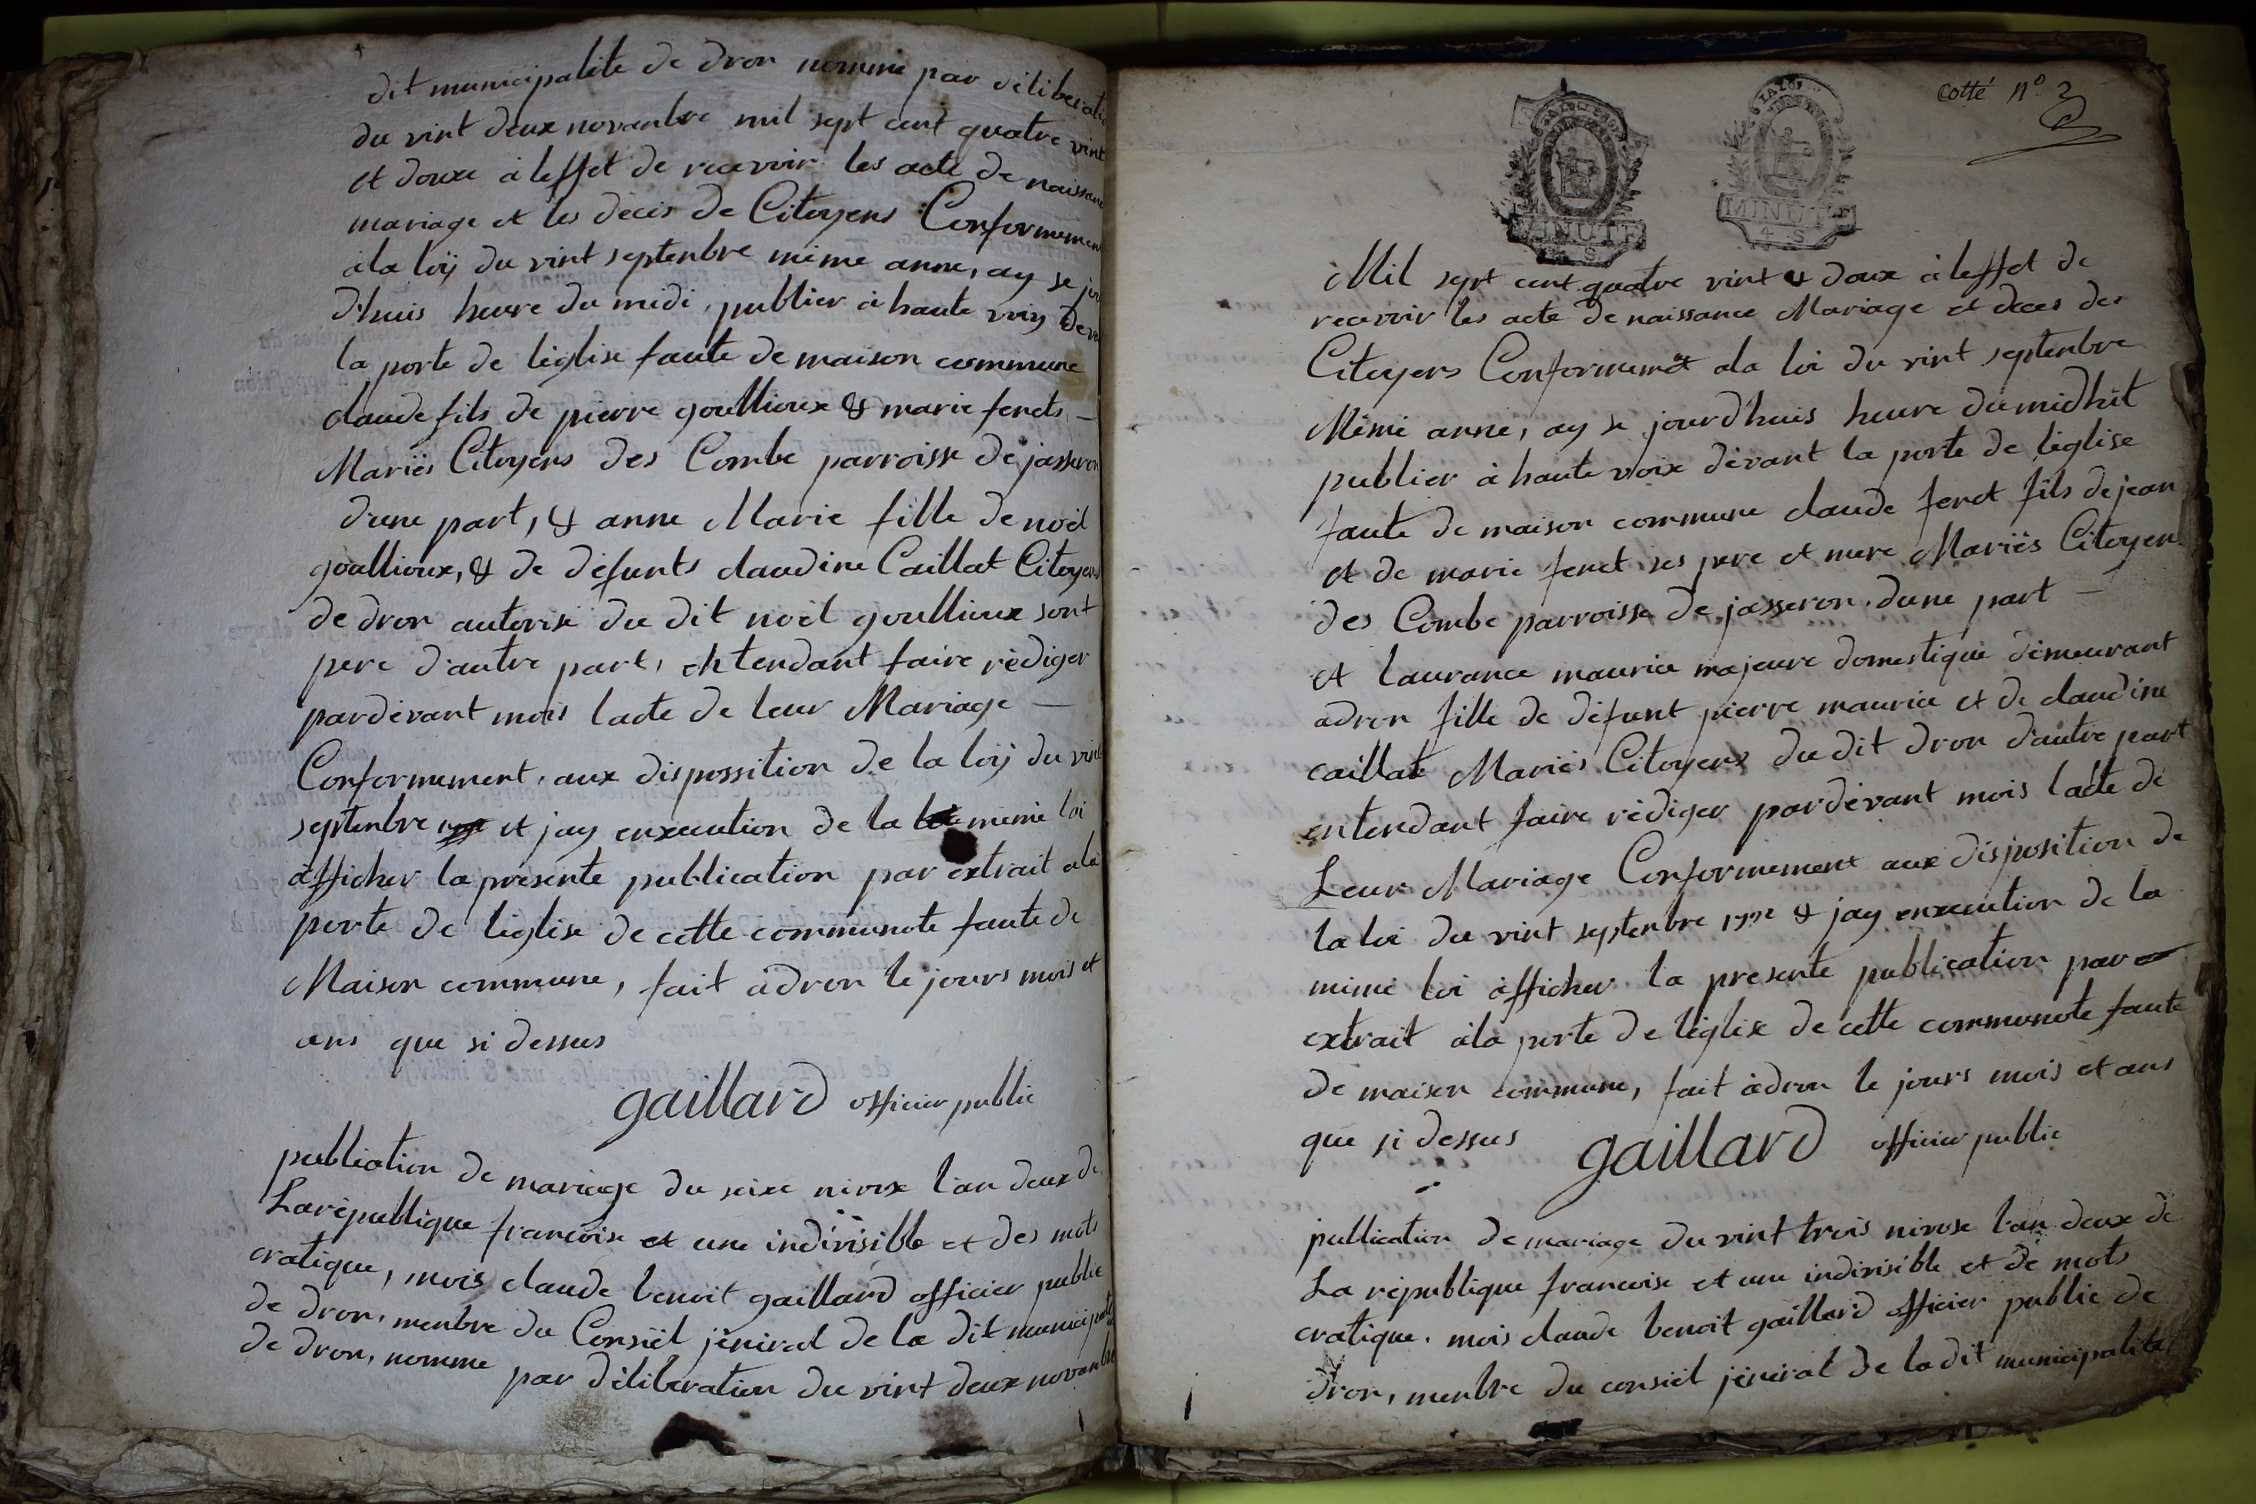 dit municipalite de dron nomme par déliberation
du vint deux novanbre mil sept cent quatre vint
et douxe à leffet de recevoir les acte de naissance
mariage et les décès de Citoyens Conformement
ala loÿ du vint septenbre même anne, ay se jour
d'huis heure du midi, publier à haute voix deva
la porte de léglise faute de maison commune
claude fils de pierre goullioux & marie ferets –
Mariés Citoyens des Combe parroisse de jasseron
dune part, & anne Marie fille de noël
goullioux, & de défunts claudine Caillat Citoyens
de dron autorisé du dit noël goullioux sont
pere d'autre part, entendant faire rédiger
pardevant mois lacte de leur Mariage –
Conformement, aux dispossition de la loÿ du vint
septenbre et jay enxecution de la même loi
àfficher la présente publication par extrait ala
porte de léglise de cette communote faute de
Maison commune, fait àdron le jours mois et
ans que si dessus
gaillard officier public
publication de mariage du seixe nivose l'an deux de
La république francoise et une indivisible et des mots
cratique, mois claude benoit gaillard officier public
de dron, menbre du Consiël jéniral de la dit municipalite
de dron, nomme par déliberation du vint deux novanbre
Cotté n° 2
LA LOI
MINUTE
4. S
MINUTE
4. S
Mil sept cent quatre vint & doux à leffet de
recevoir les acte de naissance Mariage et deces des
Citoyens Conformemét ala loi du vint septenbre
Même anné, ay se jourd'huis heure du midhit
publier à haute voix dévant la porte de léglise
faute de maison commune claude feret fils de jean
et de marie feret ses pere et mere Mariés Citoyens
des Combe parroisse de jasseron, dune part –
et laurance maurice majeure domestique démeurant
adron fille de défunt pierre maurice et de claudine
caillat Mariés Citoyens du dit dron d'autre part
entendant faire rédiger pardévant mois lacte de
Leur Mariage Conformement aux disposition de
la loi du vint septenbre 1792 & jay enxecution de la
même loi àfficher la présente publication par
extrait àla porte de léglise de cette communote faute
de maison commune, fait àdron le jours mois et ans
que si dessus gaillard officier public
publication de mariage du vint trois nivose lan deux de
La république francoise et une indivisible et dé mots
cratique. mois claude benoit gaillard officier public de
dron, menbre du consiël jéniral de la dit municipalite